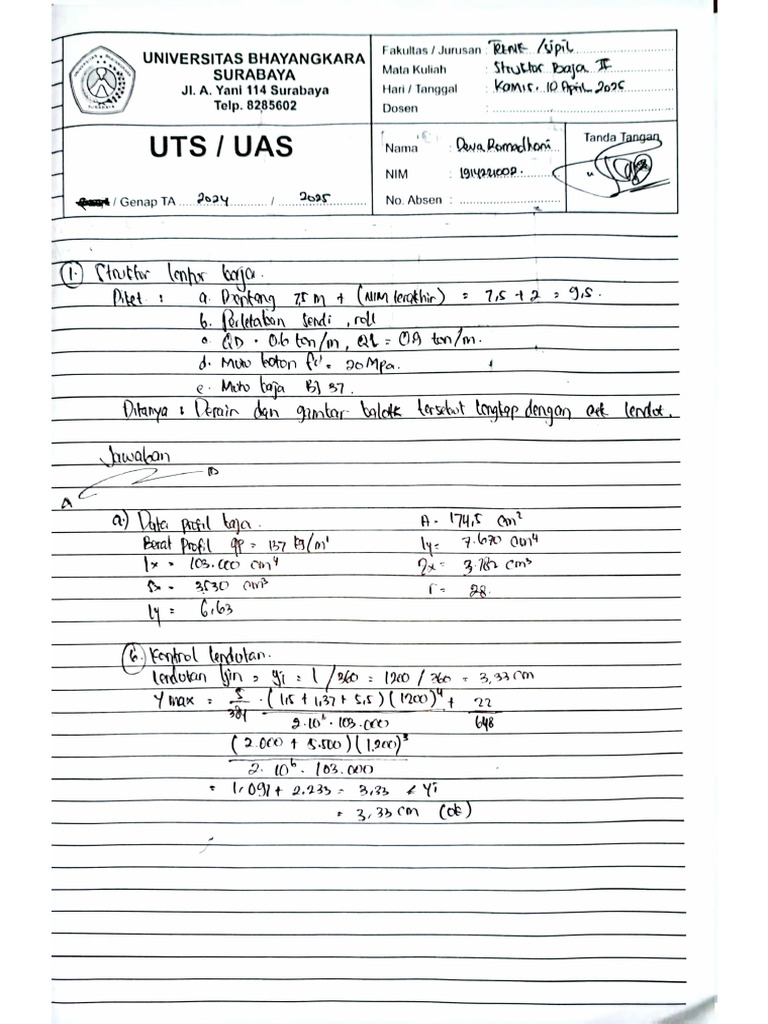 UNIVERSITAS BHAYANGKARA
SURABAYA
Jl. A. Yani 114 Surabaya
Telp. 8285602
UTS / UAS
/ Genap TA 2024 / 2025
Fakultas / Jurusan : Teknik / Sipil
Mata Kuliah : Struktur Baja II
Hari / Tanggal : Kamis. 10 April 2025
Dosen :
Nama : Dewa Romadhoni
NIM : 1914221002.
No. Absen :
Tanda Tangan
1. Struktur lentur baja.
Diket : a. Bentang 7,5 m + (NIM terakhir) = 7,5 + 2 = 9,5.
b. Perletakan sendi, roll
c. QD = 0.6 ton/m, QL = 0.9 ton/m.
d. Mutu beton fc' = 20 Mpa.
e. Mutu baja Bj 37.
Ditanya : Desain dan gambar balok tersebut lengkap dengan cek lendut.
Jawaban
A B
a.) Data profil baja. A = 174,5 cm²
Berat Profil gp = 137 kg/m' Iy = 7.670 cm⁴
Ix = 103.000 cm⁴ Zx = 3.782 cm³
Sx = 3,530 cm³ r = 28.
Iy = 6,63
b. Kontrol lendutan.
lendutan Ijin = Yi = l / 360 = 1200 / 360 = 3,33 cm
Y max = 5/384 . (1,5 + 1,37 + 5,5) (1200)⁴ / 2.10⁶ . 103.000 + 22/648
(2.000 + 5.500) (1.200)³ / 2. 10⁶ . 103.000
= 1,097 + 2.233 = 3,33 < Yi
= 3,33 cm (ok)